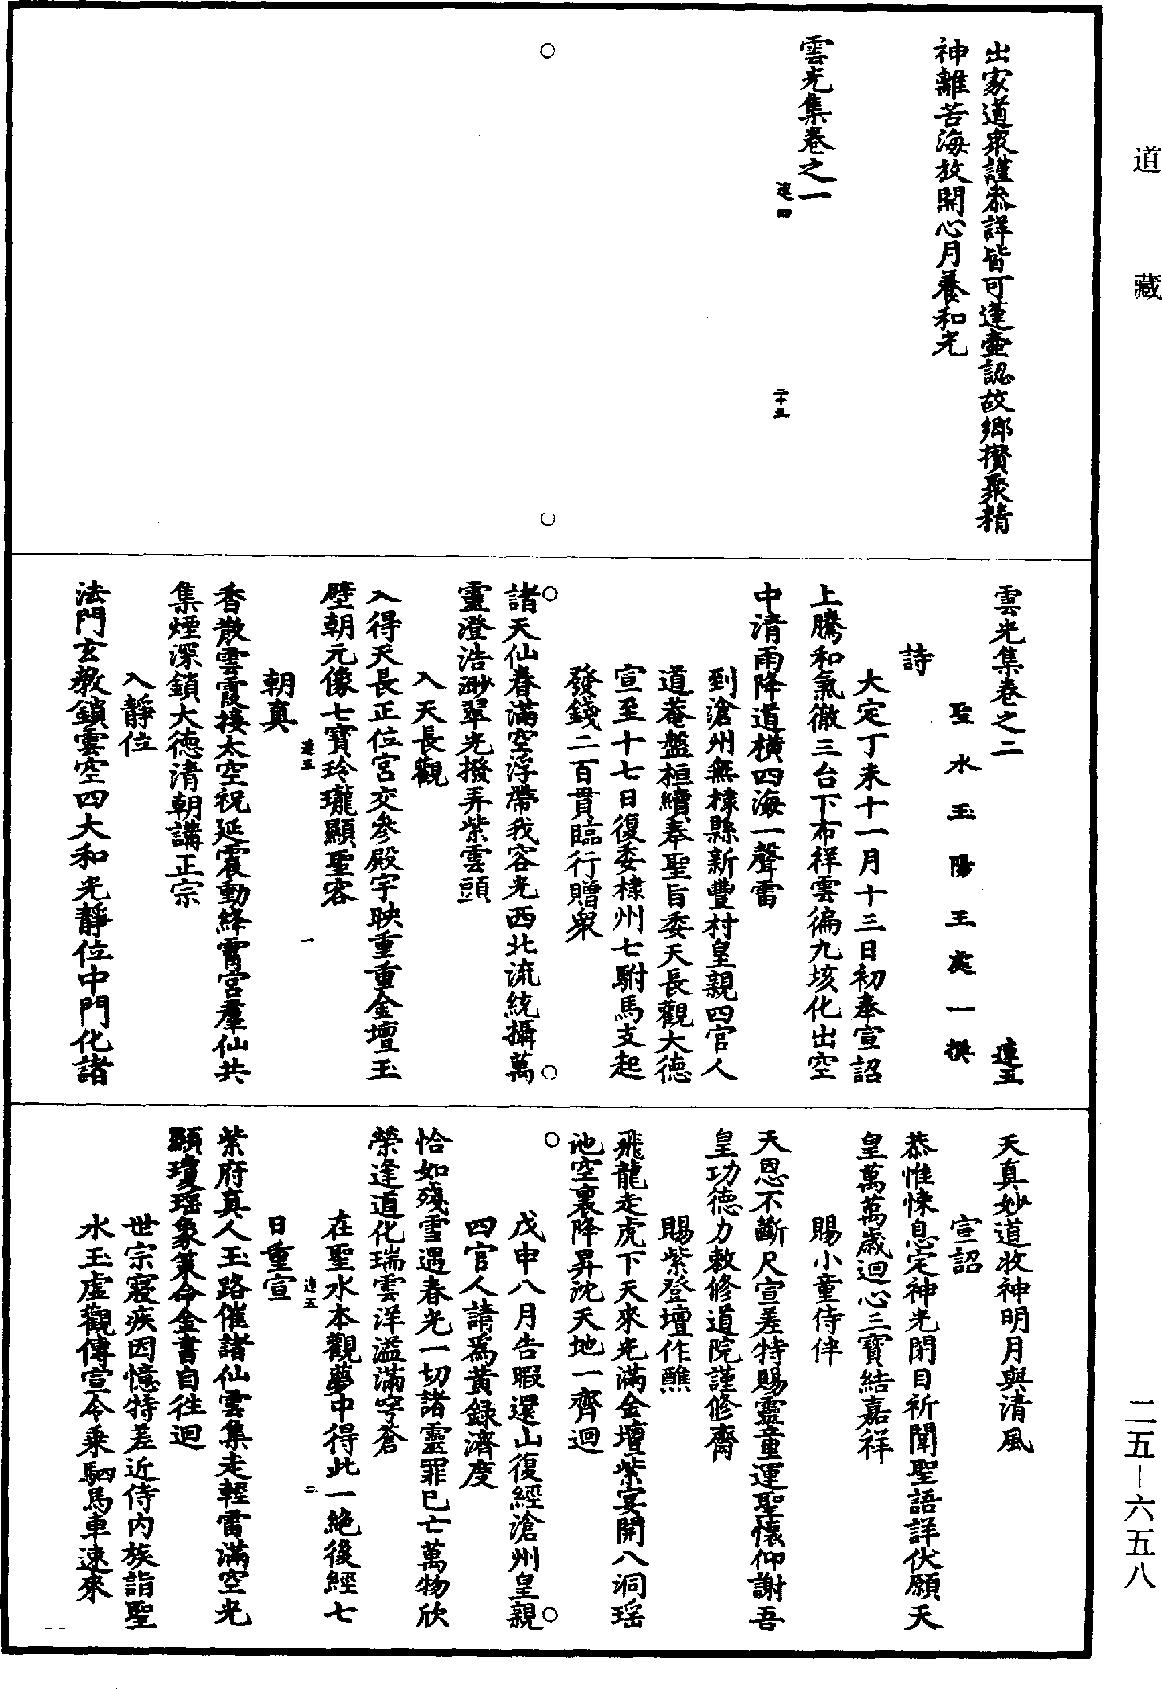 道藏
出家道眾謹叅詳皆可蓬壺認故鄉攢聚精
神離苦海放開心月養和光
雲光集卷之一
連四
二十五
雲光集卷之二
連五
聖水玉陽王處一撰
詩
大定丁未十一月十三日初奉宣詔
上騰和氣徹三台下布祥雲徧九垓化出空
中清雨降道橫四海一聲雷
到滄州無棣縣新豐村皇親四官人
道菴盤桓續奉聖旨委天長觀大德
宣至十七日復委棣州七駙馬支起
發錢二百貫臨行贈眾
諸天仙眷滿空浮帶我容光西北流統攝萬
靈澄浩渺翠光撥弄紫雲頭
入天長觀
入得天長正位宮交參殿宇映重重金壇玉
壁朝元像七寶玲瓏顯聖容
連五
一
朝真
香散雲霞接太空祝延震動絳霄宮羣仙共
集煙深鎖大德清朝講正宗
入靜位
法門玄教鎖雲空四大和光靜位中門化諸
天真妙道收神明月與清風
宣詔
恭惟悚息定神光閉目祈聞聖語詳伏願天
皇萬萬歲迴心三寶結嘉祥
賜小童侍伴
天恩不斷尺宣差特賜靈童運聖懷仰謝吾
皇功德力敕修道院謹修齋
賜紫登壇作醮
飛龍走虎下天來光滿金壇紫宴開八洞瑶
池空裏降昇沈天地一齊迴
戊申八月告暇還山復經滄州皇親
四官人請為黃錄濟度
恰如殘雪遇春光一切諸靈罪已亡萬物欣
榮逢道化瑞雲洋溢滿穹蒼
在聖水本觀夢中得此一絶後經七
日重宣
連五
二
紫府真人玉路催諸仙雲集走輕雷滿空光
顯瓊瑶象策命金書自往迴
世宗寢疾因憶特差近侍內族詣聖
水玉虛觀傳宣令乘駟馬車速來
二五—六五八